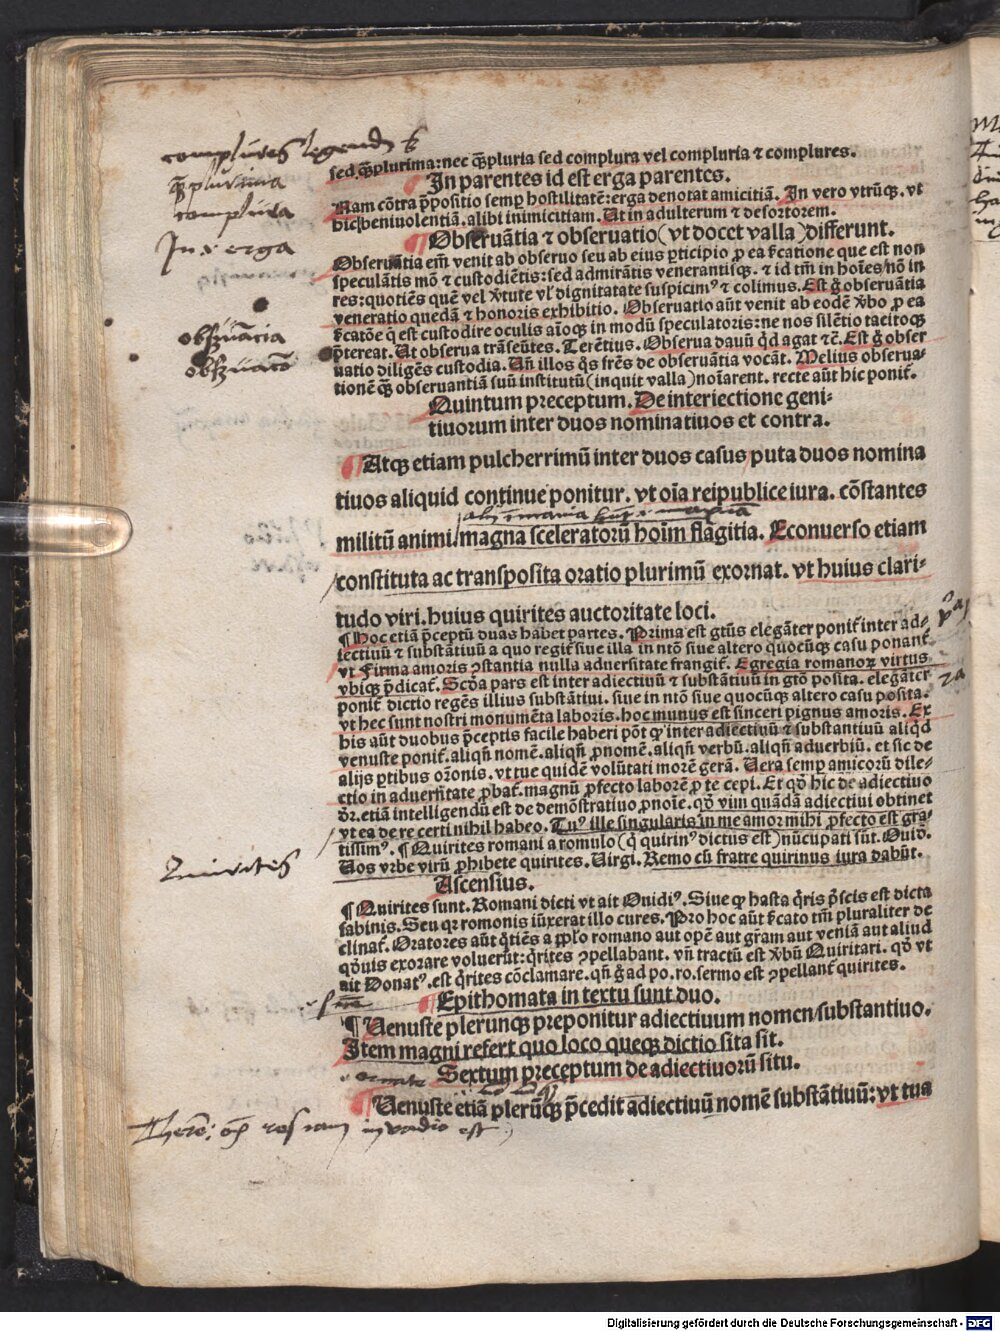 complures legend
sed q̃splurima: nec q̃spluria sed complura vel compluria ⁊ complures.
q̃splurima
complura
¶ In parentes id est erga parentes.
Nam cõtra p̄positio semꝑ hostilitatẽ: erga denotat amicitiã. In vero vtrũq̃. vt
hic/beniuolentiã. alibi inimicitiam. Ut in adulterum ⁊ desortorem.
In ⁊ erga
¶ Obseruãtia ⁊ obseruatio (vt docet valla) differunt.
Obseruãtia em̃ venit ab obseruo seu ab eius ꝑticipio ꝓ ea s̃catione que est non
speculãtis mõ ⁊ custodiẽtis: sed admirãtis venerantisq̃. ⁊ id tm̃ in hoĩes/nõ in
res: quotiẽs quẽ vel v̓tute vl̓ dignitatate suspicimꝰ ⁊ colimus. Est g̊ obseruãtia
veneratio quedã ⁊ honoris exhibitio. Obseruatio aũt venit ab eodẽ v̓bo ꝓ ea
s̃catõe q̃ est custodire oculis aĩoq̃ in modũ speculatoris: ne nos silẽtio taeitoq̃
p̄tereat. Ut obserua trãseũtes. Terẽtius. Obserua dauũ qd agat ⁊c̃. Est g̊ obser
obs̓uãcia
obs̓uacõ
uatio diligẽs custodia. Uñ illos q̊s frẽs de obseruãtia vocãt. Melius obserua-
tionẽ q̃s obseruantiã suũ institutũ (inquit valla) noĩarent. recte aũt hic ponit̃.
Quintum preceptum. De interiectione geni-
tiuorum inter duos nominatiuos et contra.
¶ Atq̃ etiam pulcherrimũ inter duos casus/puta duos nomina
tiuos aliquid continue ponitur. vt oĩa reipublice iura. cõstantes
militũ animi/magna sceleratorũ hoĩm flagitia. Econuerso etiam
constituta ac transposita oratio plurimũ exornat. vt huius clari-
tudo viri. huius quirites auctoritate loci.
¶ Hoc etiã p̄ceptũ duas habet partes. Prima est gtũs elegãter ponit̃ inter ad-
iectiuũ ⁊ substãtiuũ a quo regit̃ siue illa in ntõ siue altero quocũq̃ casu ponant̃
vt Firma amoris ꝯstantia nulla aduersitate frangit̃. Egregia romanoꝝ virtus
vbiq̃ p̄dicat̃. Scd̃a pars est inter adiectiuũ ⁊ substãtiuũ in gtõ posita. elegãter
ponit̃ dictio regẽs illius substãtiui. siue in ntõ siue quocũq̃ altero casu posita.
vt hec sunt nostri monumẽta laboris. hoc munus est sinceri pignus amoris. Ex
his aũt duobus p̄ceptis facile haberi põt ꝙ inter adiectiuũ ⁊ substantiuũ aliqd̃
venuste ponit̃. aliqñ nomẽ. aliqñ ꝓnomẽ. aliqñ verbũ. aliqñ aduerbiũ. et sic de
alijs ꝑtibus or̃onis. vt tue quidẽ volũtati morẽ gerã. Uera semꝑ amicorũ dile-
ctio in aduersitate ꝓbat̃. magnũ ꝓfecto laborẽ ꝓ te cepi. Et qd̓ hic de adiectiuo
dr̃. etiã intelligendũ est de demõstratiuo ꝓnoĩe. qd̓ vim quãdã adiectiui obtinet
vt ea de re certi nihil habeo. Tuꝰ ille singularis in me amor mihi ꝓfecto est gra-
tissimꝰ. ¶ Quirites romani a romulo (q̇ quirinꝰ dictus est) nũcupati sũt. Ouid.
Uos vrbe virũ ꝓhibete quirites. Uirgi. Remo cũ fratre quirinus iura dabũt.
Quirites
Ascensius.
¶ Quirites sunt. Romani dicti vt ait Ouidiꝰ. Siue ꝙ hasta q̇ris p̄scis est dicta
sabinis. Seu qr romonis iũxerat illo cures. Pro hoc aũt s̃cato tm̃ pluraliter de
clinat̃. Oratores aũt q̇tiẽs a pp̃lo romano aut opẽ aut gr̃am aut veniã aut aliud
qd̓uis exorare voluerũt: q̇rites ꝯpellabant. vñ tractũ est v̓bũ Quiritari. qd̓ vt
ait Donatꝰ. est q̇rites cõclamare. qñ g̊ ad po. ro. sermo est ꝯpellant̃ quirites.
¶ Epithomata in textu sunt duo.
¶ Uenuste plerunq̃ preponitur adiectiuum nomen/substantiuo.
Item magni refert quo loco queq̃ dictio sita sit.
Sextum preceptum de adiectiuorũ situ.
¶ Uenuste etiã plerũq̃ p̄cedit adiectiuũ nomẽ substãtiuũ: vt tua
res iam in vadio est
Digitalisierung gefördert durch die Deutsche Forschungsgemeinschaft - DFG